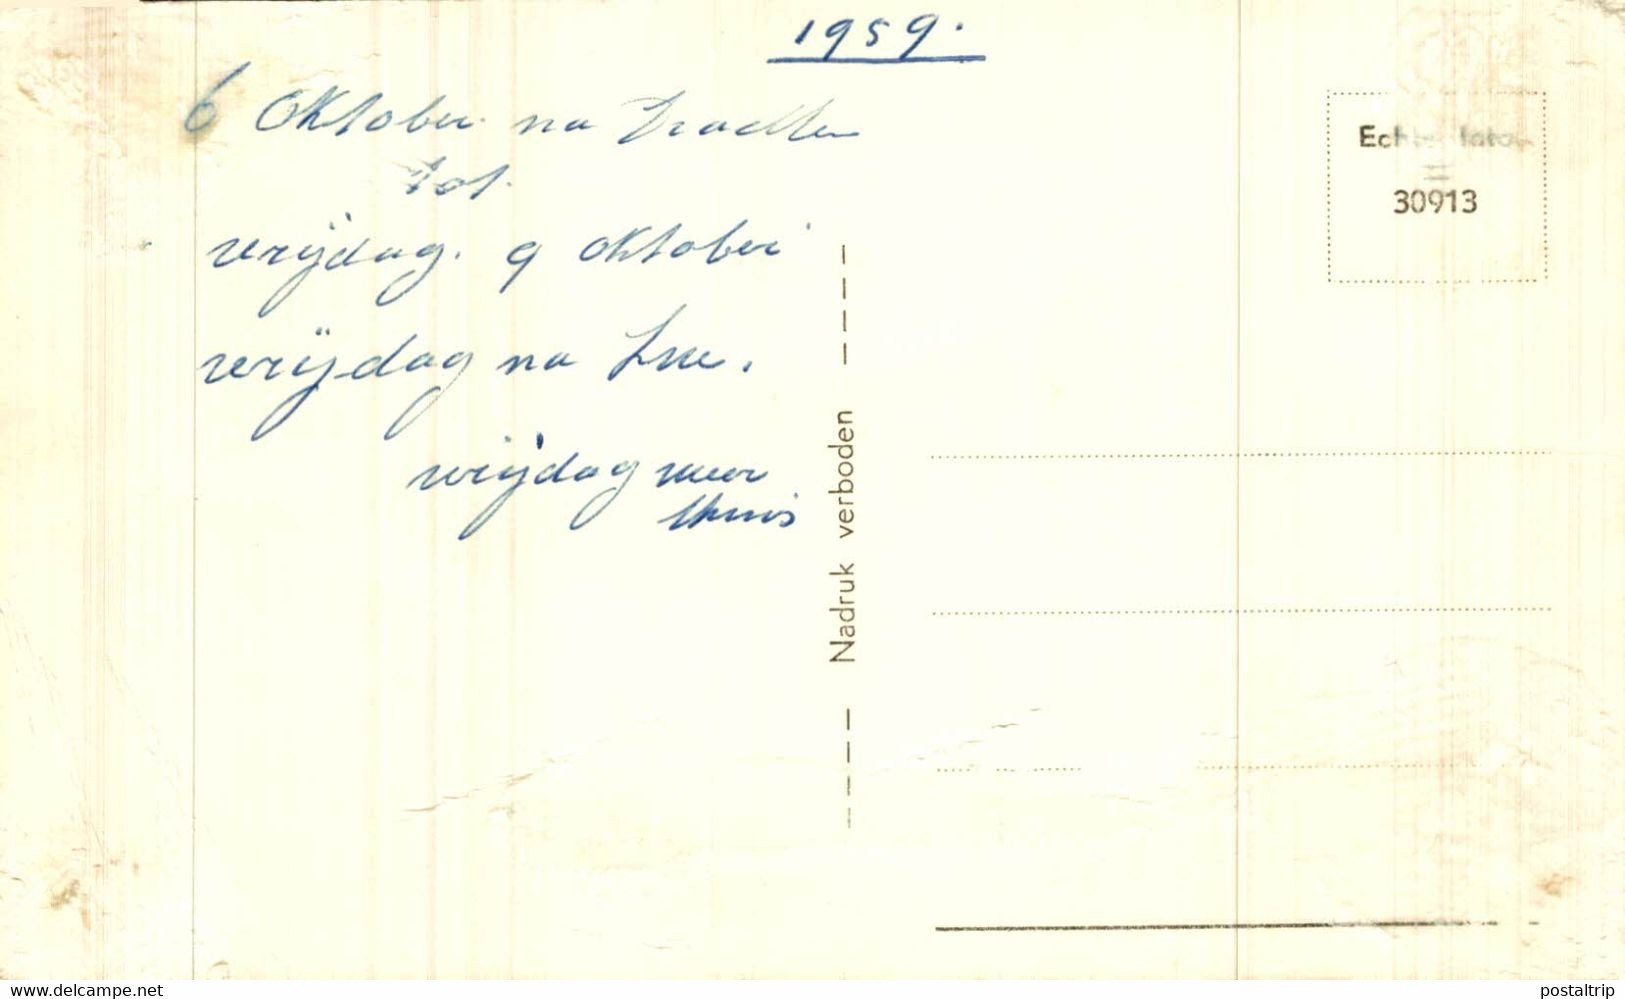 1959.
6 Oktober na
tot.
vrijdag. 9 Oktober
vrijdag na
vrijdag weer
thuis
Nadruk verboden
Echte foto
30913
www.delcampe.net
postaltrip